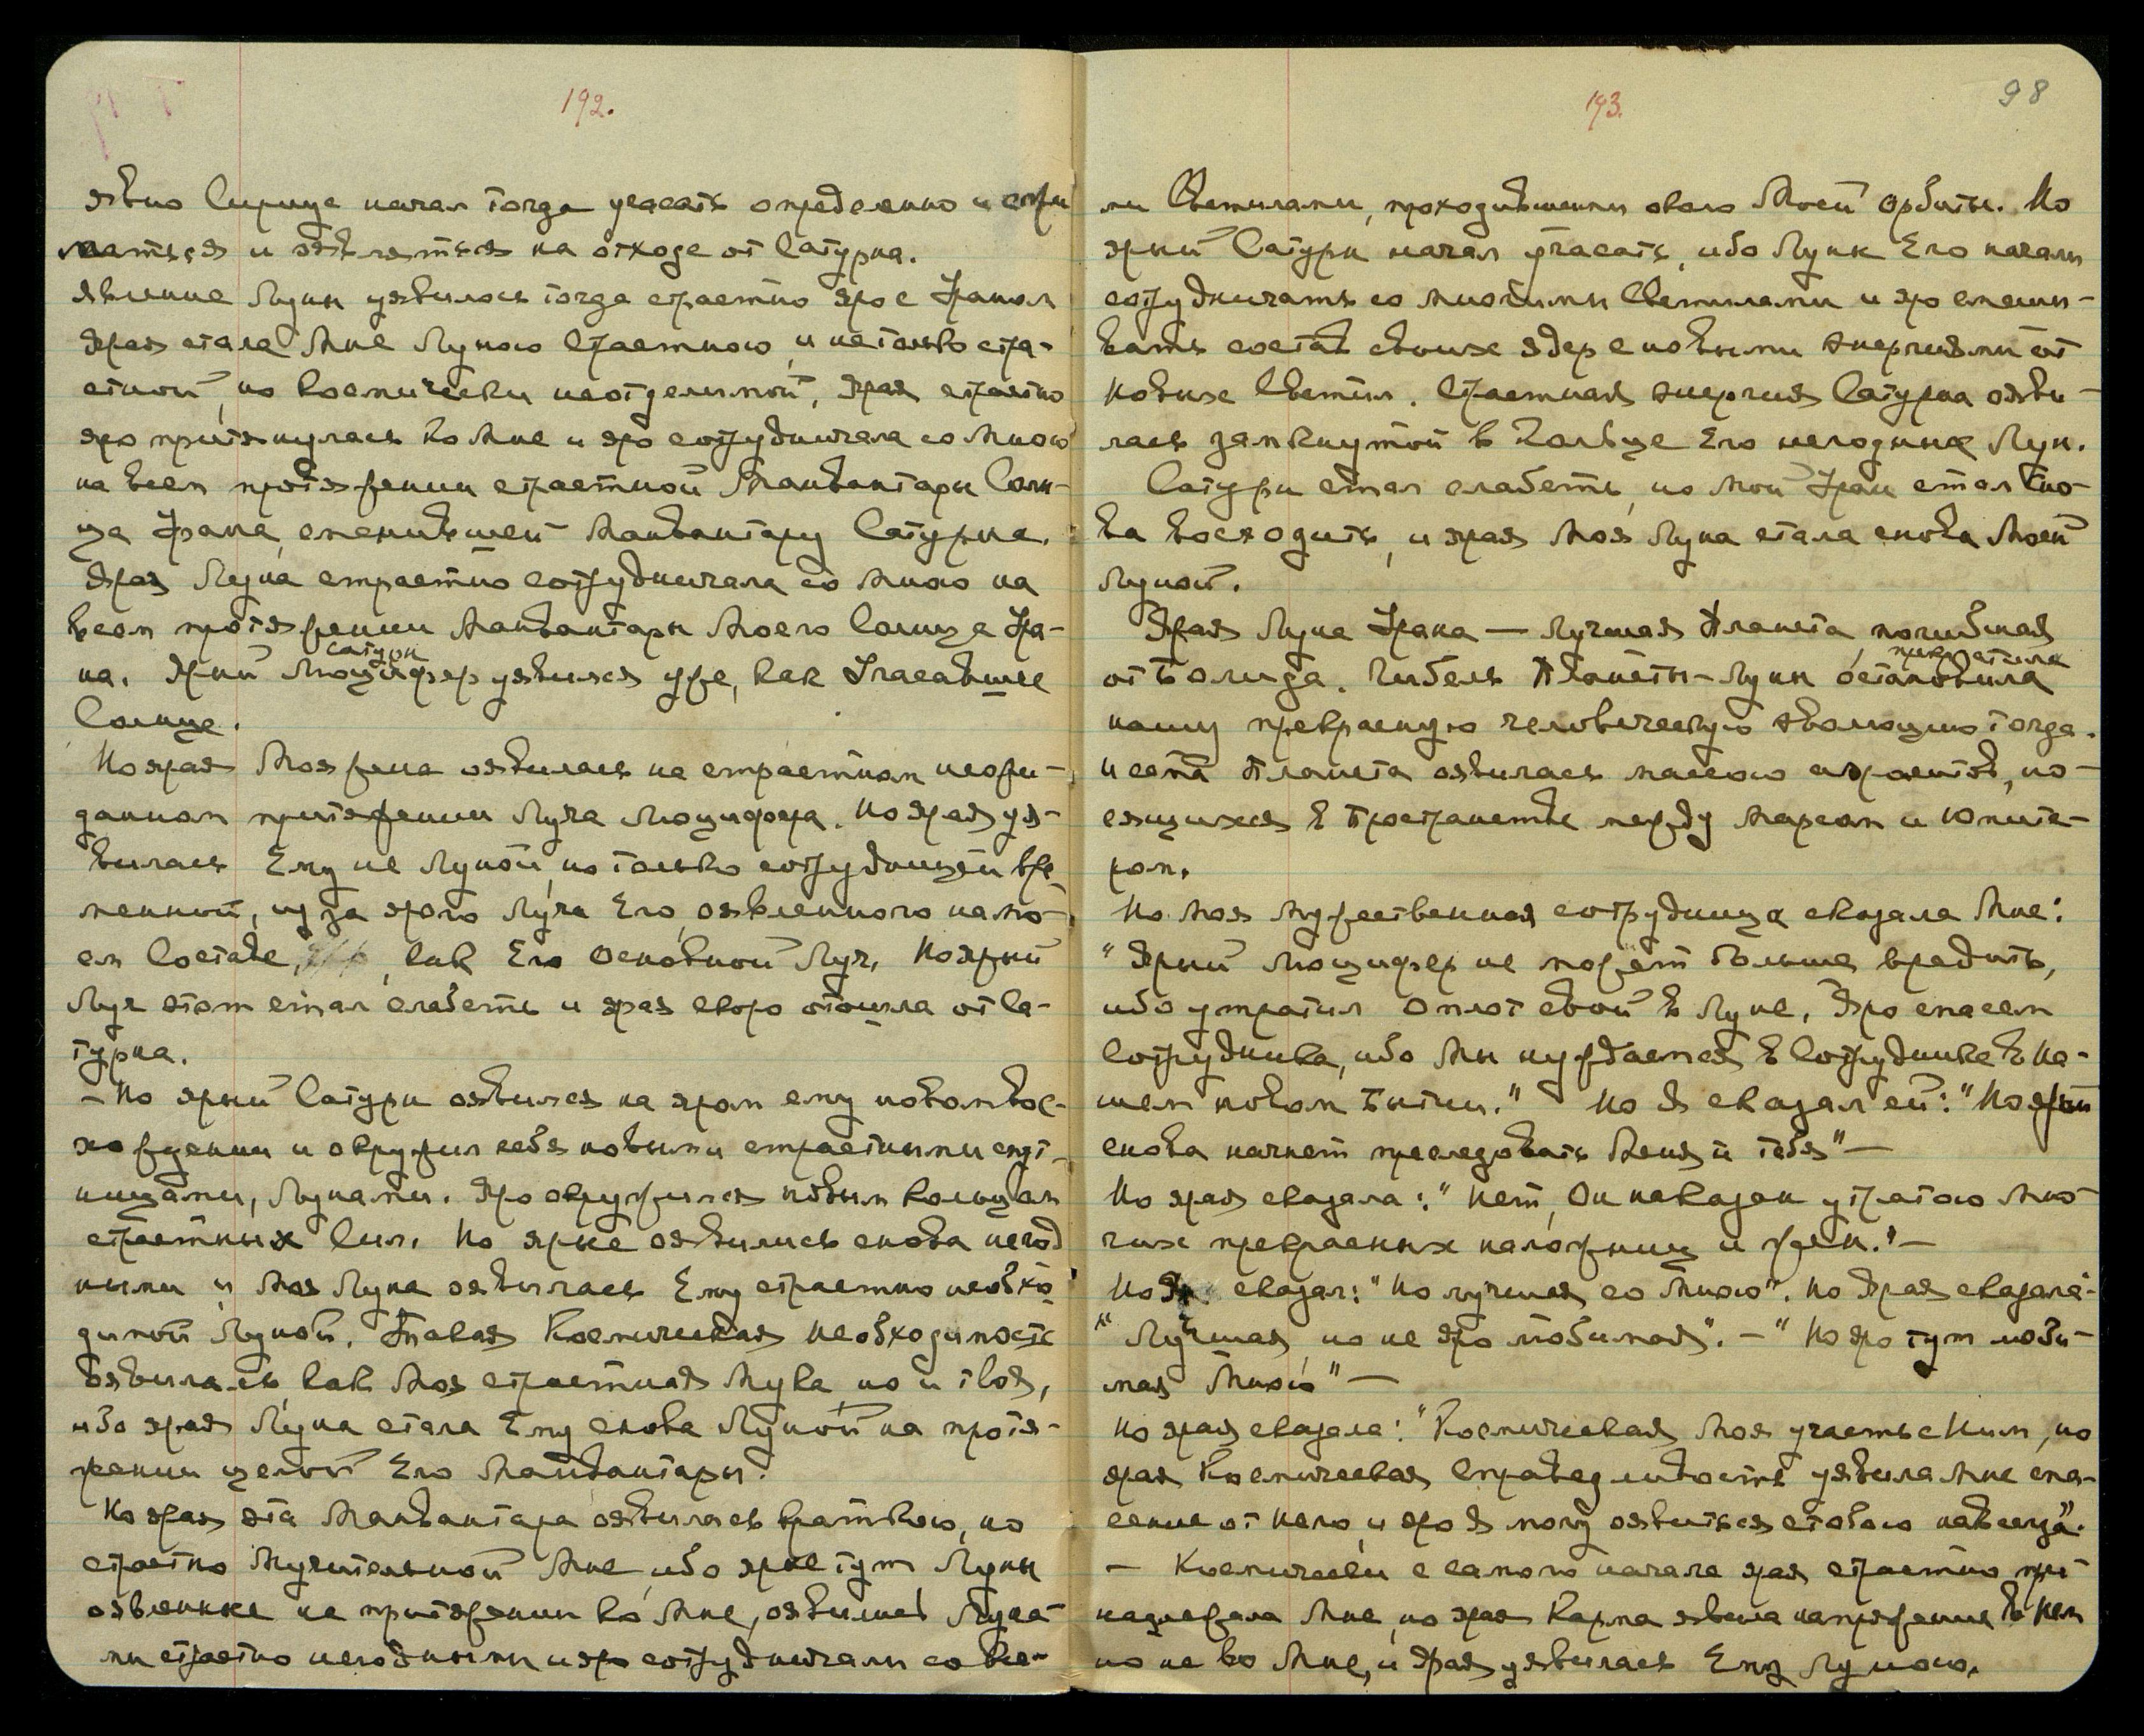 192.
явно Сирице начал тогда угасать определенно и сжи
маться и являться на отходе от Сатурна.
Явление Луны уявилось тогда страстно яро с Ураном
Ярая стала Мне Луною страстною и не только стра-
стной, но космически неотделимой. Ярая страстно
яро притянулась ко Мне и яро сотрудничала со Мною
на всем протяжении страстной Манвантары Солн-
ца Урана, сменившей Манвантару Сатурна.
Ярая Луна страстно сотрудничала со Мною на
всем протяжении Манвантары Моего Солнца Ура-
сатурн
на. Ярый Люцифер уявился уже, как Угасавшее
Солнце.
Но ярая Моя жена оявилась на страстном неожи-
данном притяжении Луча Люцифера. Но ярая уя-
вилась Ему не Луной, но только сотрудницей вре-
менной, из за ярого Луча Его, оявленного на мо-
ем Составе, как Его Основной Луч. Но ярый
Луч этот стал слабеть и ярая скоро отошла от Са-
турна.
– Но ярый Сатурн оявился на яром ему новом вос-
хождении и окружил себя новыми страстными спут-
ницами, Лунами. Яро окружился новым кольцом
страстных сил. Но ярые оявились снова негод
ными и Моя Луна оявилась Ему страстно необхо
димой Луной. Такая Космическая Необходимость
оявилась, как Моя страстная Мука, но и твоя,
ибо ярая Луна стала Ему снова Луной на протя-
жении целой Его Манвантары.
Но ярая эта Манвантара оявилась краткою, но
страстно мучительной Мне, ибо ярые тут Луны
оявленные на притяжении ко Мне, оявились Луна-
ми страстно негодными и яро сотрудничали со все-
98
193.
ми Светилами, проходившими около Моей орбиты. Но
ярый Сатурн начал угасать, ибо Луны Его начали
сотрудничать со многими Светилами и яро смеши-
вать состав своих ядер с новыми энергиями от
новых Светил. Страстная энергия Сатурна ояви-
лась замкнутой в Кольце Его негодных Лун.
Сатурн стал слабеть, но мой Уран стал сно-
ва восходить, и ярая Моя Луна стала снова Моей
Луной.
Ярая Луна Урана — Лучшая Планета, погибшая
прекратила
от Болида. Гибель Планеты-Луны остановила
нашу прекрасную человеческую эволюцию тогда.
И сама Планета оявилась массою астероидов, но-
сящихся в Пространстве между Марсом и Юпите-
ром.
Но Моя мужественная сотрудница сказала Мне:
"Ярый Люцифер не может больше вредить,
ибо утратил оплот свой в Луне. Яро спасем
Сотрудника, ибо Мы нуждаемся в Сотруднике в На-
шем новом Бытии." Но Я сказал ей: "Но ярый
снова начнет преследовать Меня и тебя" —
Но ярая сказала: "Нет, Он наказан утратою мно-
гих прекрасных наложниц и жен." —
Но Я сказал: "Но лучшая со Мною". Но Ярая сказала:
"Лучшая, но не яро любимая". — "Но яро тут люби-
мая Мною" —
Но ярая сказала: "Космическая Моя участь с Ним, но
ярая Космическая Справедливость уявила Мне спа-
сение от Него, и яро Я могу оявиться с тобою навсегда".
— Космически с самого начала ярая страстно при
надлежала Мне, но ярая Карма явила напряжение в Нем
но не во Мне, и Ярая уявилась Ему Луною.